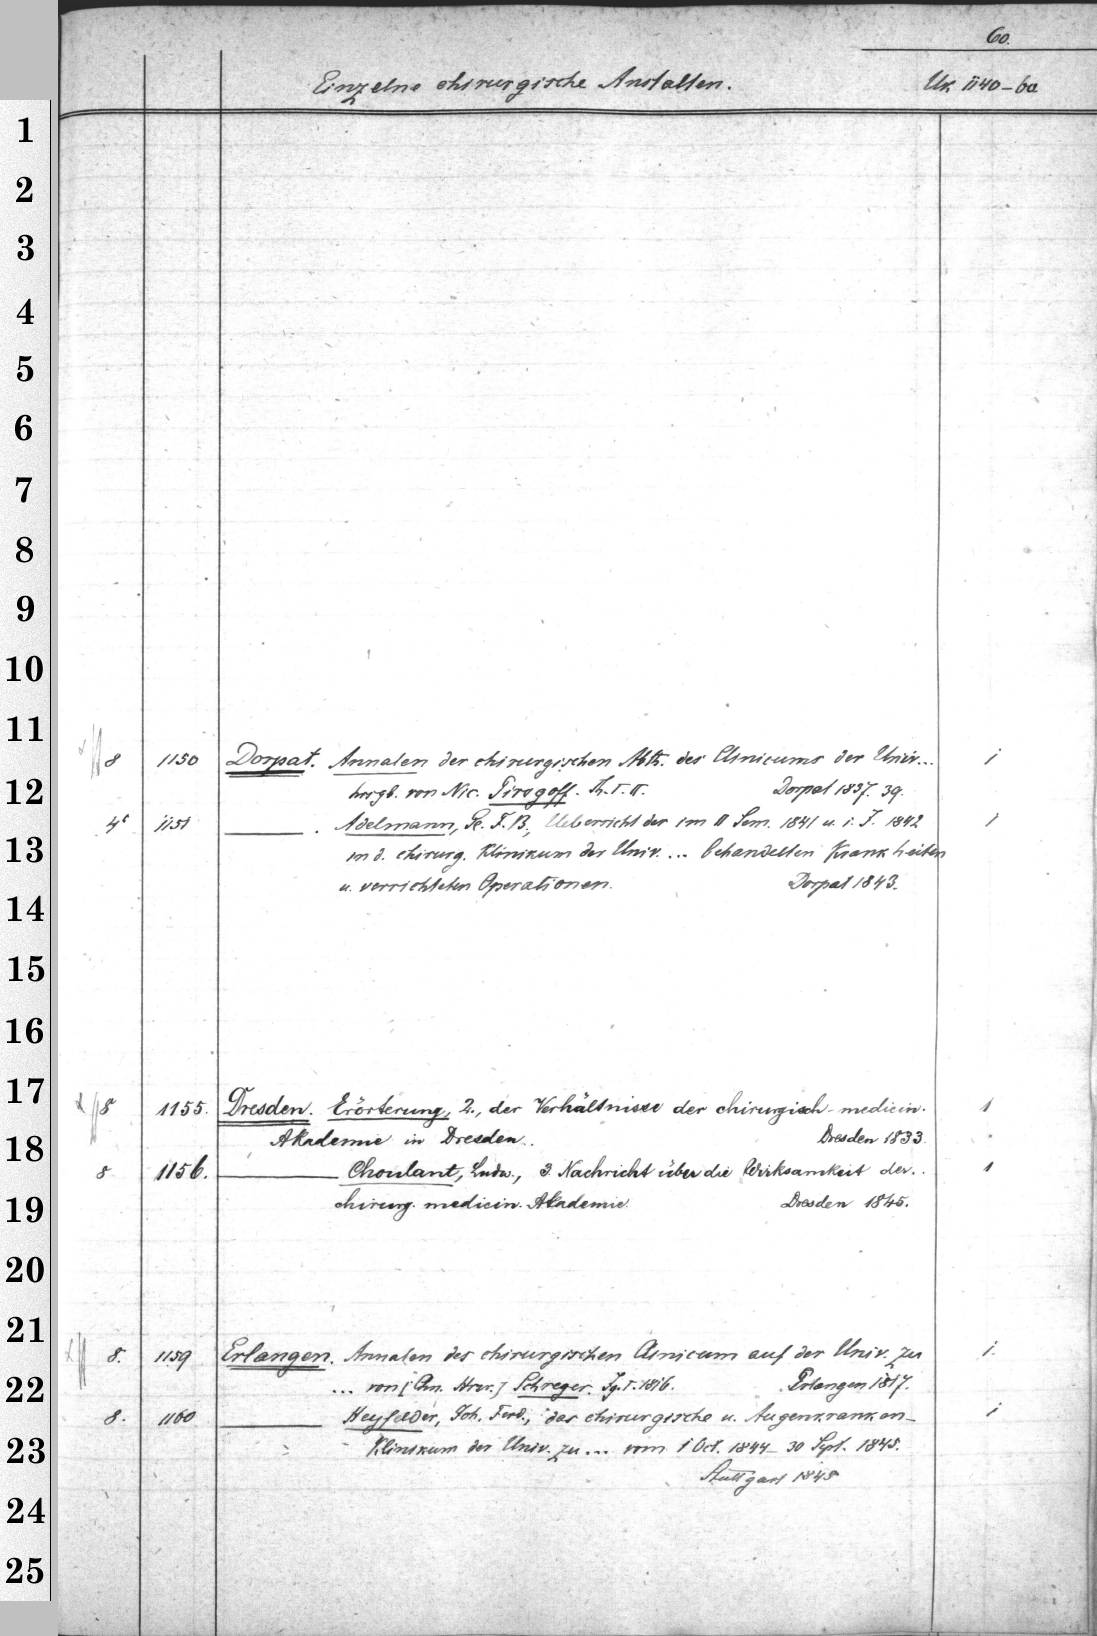 60.
Einzelne chirurgische Anstalten. Uk 1140–60
1
2
3
4
5
6
7
8
9
10
11
8 1150 Dorpat. Annalen der chirurgischen Abth. des Clinicums der Univ... 1
12
hrsgb. von Nic. Pirogoff. Th. I. II. Dorpat 1837. 39.
4° 1151 ———. Adelmann, Ge. F. B., Uebersicht der im II Sem. 1841 u. i. J. 1842 1
13
in d. chirurg. Klinikum der Univ. ... behandelten Krankheiten
u. verrichteten Operationen. Dorpat 1843.
14
15
16
17
8 1155. Dresden. Erörterung, 2., der Verhältnisse der chirurgisch-medicin. 1
Akademie in Dresden.. Dresden 1833.
18
8 1156. ——— Choulant, Ludw., 3. Nachricht über die Wirksamkeit der.. 1
chirurg. medicin. Akademie. Dresden 1845.
19
20
21
8. 1159 Erlangen. Annalen des chirurgischen Clinicum auf der Univ. zu 1.
22
... von [Chn. ] Schreger. Jg. I. 1816. Erlangen 1817.
8. 1160 ——— Heyfelder, Joh. Ferd., das chirurgische u. Augenkranken- 1
23
Klinikum der Univ. zu ... vom 1 Oct. 1844– 30 Sept. 1845.
Stuttgart 1845
24
25